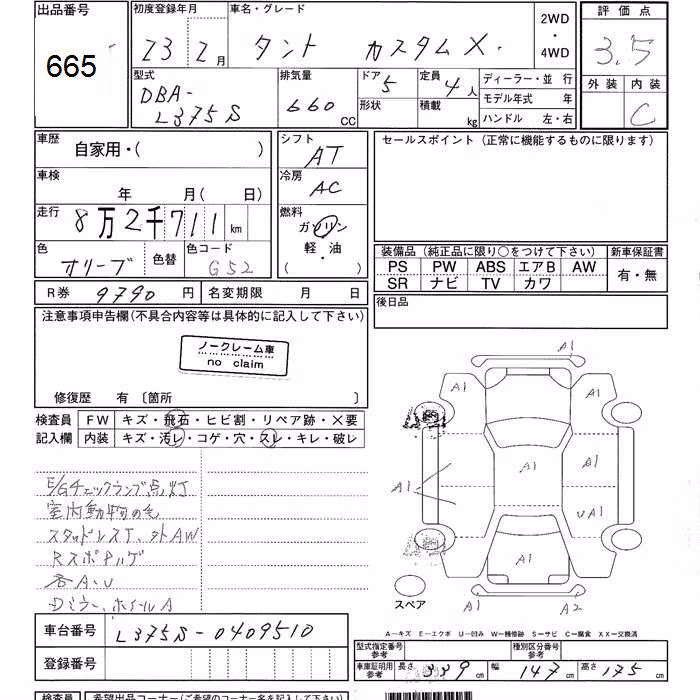 出品番号
665
初度登録年月
23 2月
車名・グレード
タント カスタムX.
2WD
・
4WD
評価点
3.5
外装 内装
C
型式
DBA-
L375S
排気量
660 CC
ドア
5
形状
定員
4人
積載
kg
ディーラー・並行
モデル年式 年
ハンドル 左・右
車歴
自家用・( )
車検
年 月( 日)
走行
8万2千711km
色
オリーブ
色替
色コード
G52
シフト
AT
冷房
AC
燃料
ガソリン
軽・油
( )
セールスポイント(正常に機能するものに限ります)
装備品(純正品に限り○をつけて下さい)
新車保証書
PS PW ABS エアB AW
SR ナビ TV カワ
有・無
R券 9790 円
名変期限 月 日
後日品
注意事項申告欄(不具合内容等は具体的に記入して下さい)
ノークレーム車
no claim
修復歴 有 〔箇所 〕
検査員
記入欄
FW キズ・飛石・ヒビ割・リペア跡・X要
内装 キズ・汚レ・コゲ・穴・スレ・キレ・破レ
E/Gチェックランプ点灯
室内動物の毛
スタッドレスT、外AW
Rスポイルゲ
各A・U
Dミラー、ホイルA
A1
A1
A1
A1
A1
A1
UA1
A1
A1
A2
スペア
A－キズ E－エクボ U－凹み W－補修跡 S－サビ C－腐食 XX－交換済
車台番号
L375S-0409510
登録番号
型式指定番号
参考
種別区分番号
参考
車庫証明用
参考
長さ 339cm
幅 147cm
高さ 175cm
検査員
希望出品コーナー(ご希望のコーナー名を記入下さい)